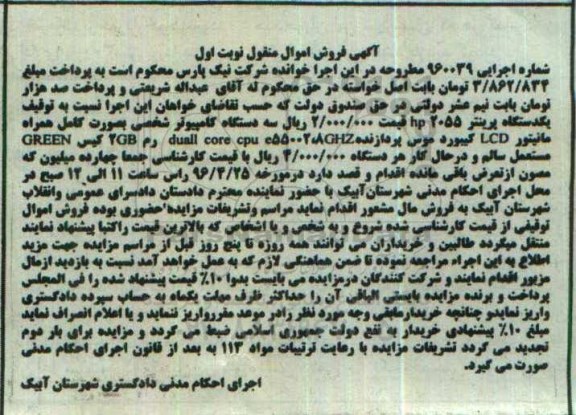 آگهی فروش اموال منقول نوبت اول
شماره اجرایی ۹۶۰۰۳۹ مطروحه در این اجرا خوانده شرکت نیک پارس محکوم است به پرداخت مبلغ
۳/۸۶۲/۸۳۴ تومان بابت اصل خواسته در حق محکوم له آقای عبداله شریعتی و پرداخت صد هزار
تومان بابت نیم عشر دولتی در حق صندوق دولت که حسب تقاضای خواهان این اجرا نسبت به توقیف
یکدستگاه پرینتر hp ۲۰۵۵ قیمت ۲/۰۰۰/۰۰۰ ریال سه دستگاه کامپیوتر شخصی بصورت کامل همراه
مانیتور LCD کیبورد موس پردازنده duall core cpu e۵۵۰۰۲۸GHZ رم ۲GB کیس GREEN
مستعمل سالم و درحال کار هر دستگاه ۴/۰۰۰/۰۰۰ ریال با قیمت کارشناسی جمعا چهارده میلیون که
مصون ازتعرض باقی مانده اقدام و قصد دارد درمورخه ۹۶/۴/۲۵ راس ساعت ۱۱ الی ۱۲ صبح در
محل اجرای احکام مدنی شهرستان‌آبیک با حضور نماینده محترم دادستان دادسرای عمومی وانقلاب
شهرستان آبیک به فروش مال مشمور اقدام نماید مراسم وتشریفات مزایده‌'حضوری بوده فروش اموال
توقیفی از قیمت کارشناسی شده شروع و به شخص و یا اشخاصی که بالاترین قیمت راکتبا پیشنهاد نمایند
منتقل میگردد طالبین و خریداران می توانند همه روزه تا پنج روز قبل از مراسم مزایده جهت مزید
اطلاع به این اجراء مراجعه نموده تا ضمن هماهنگی لازم که به عمل خواهد آمد نسبت به بازدید ازمال
مزبور اقدام نمایند و شرکت کنندگان درمزایده می بایست بدوا ۱۰٪ قیمت پیشنهاد شده را فی المجلس
پرداخت و برنده مزایده بایستی الباقی آن را حداکثر ظرف مهلت یکماه به حساب سپرده دادگستری
واریز نمایدو چنانچه خریدارمابقی وجه مورد نظر رادر موعد مقررواریز ننماید و یا اعلام انصراف نماید
مبلغ ۱۰٪ پیشنهادی خریدار به نفع دولت جمهوری اسلامی ضبط می گردد و مزایده برای بار دوم
تجدید می گردد تشریفات مزایده با رعایت ترتیبات مواد ۱۱۳ به بعد از قانون اجرای احکام مدنی
صورت می گیرد.
اجرای احکام مدنی دادگستری شهرستان آبیک